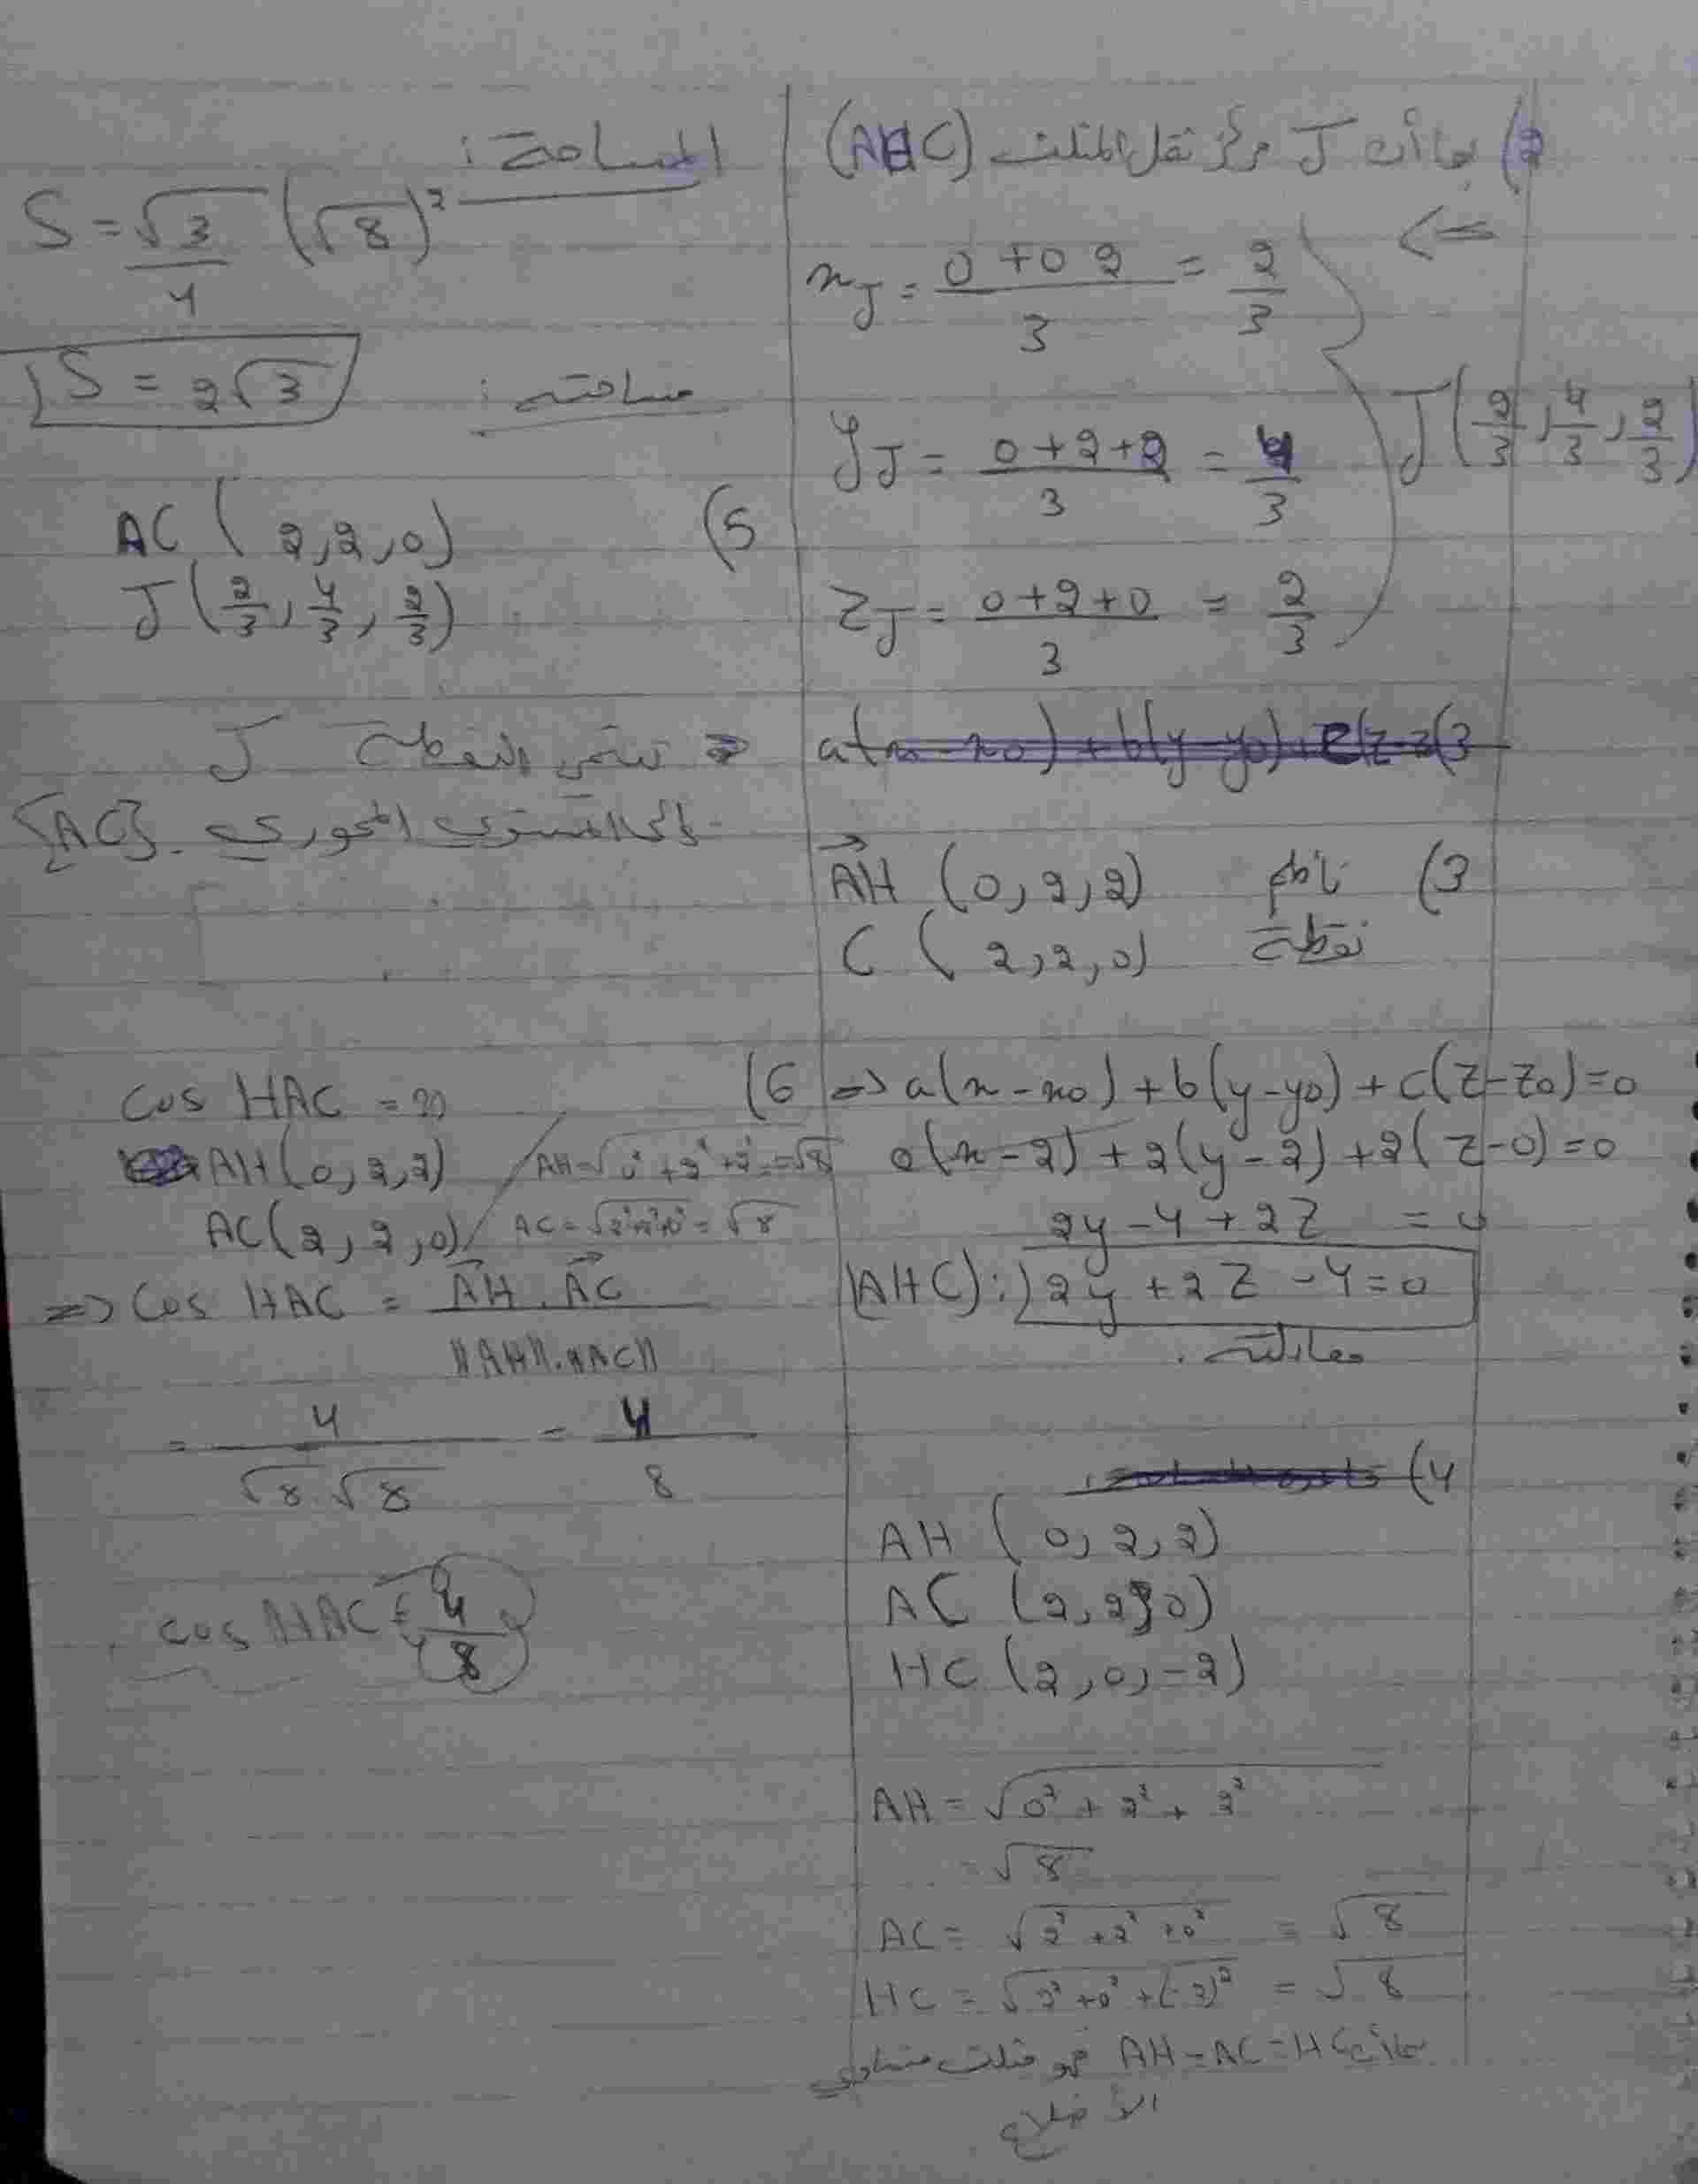 2) بما أن J مركز ثقل المثلث (AHC)
<=
x_J = (0 + 0 2)/3 = 2/3
y_J = (0+2+2)/3 = 4/3
J(2/3, 4/3, 2/3)
z_J = (0+2+0)/3 = 2/3
a(x-x0) + b(y-y0) + c(z-z (3
3) ناظم AH (0, 2, 2)
نقطة C (2, 2, 0)
=> a(x-x0) + b(y-y0) + c(z-z0) = 0
0(x-2) + 2(y-2) + 2(z-0) = 0
2y - 4 + 2z = 0
(AHC): 2y + 2z - 4 = 0
معادلته.
(4
AH (0, 2, 2)
AC (2, 2, 0)
HC (2, 0, -2)
AH = √(0² + 2² + 2²)
= √8
AC = √(2² + 2² + 0²) = √8
HC = √(2² + 0² + (-2)²) = √8
بما أن AH = AC = HC فهو مثلث متساوي
الأضلاع
المساحة:
S = √3/4 (√8)²
مساحته: S = 2√3
(5 AC (2, 2, 0)
J (2/3, 4/3, 2/3)
=> تنتمي النقطة J
إلى المستوي المحوري [AC].
(6 cos HAC = ??
AH(0, 2, 2) / AH = √(0² + 2² + 2²) = √8
AC(2, 2, 0) / AC = √(2²+2²+0²) = √8
=> cos HAC = AH . AC / ||AH||.||AC||
= 4/(√8 √8) = 4/8
cos HAC = 4/8